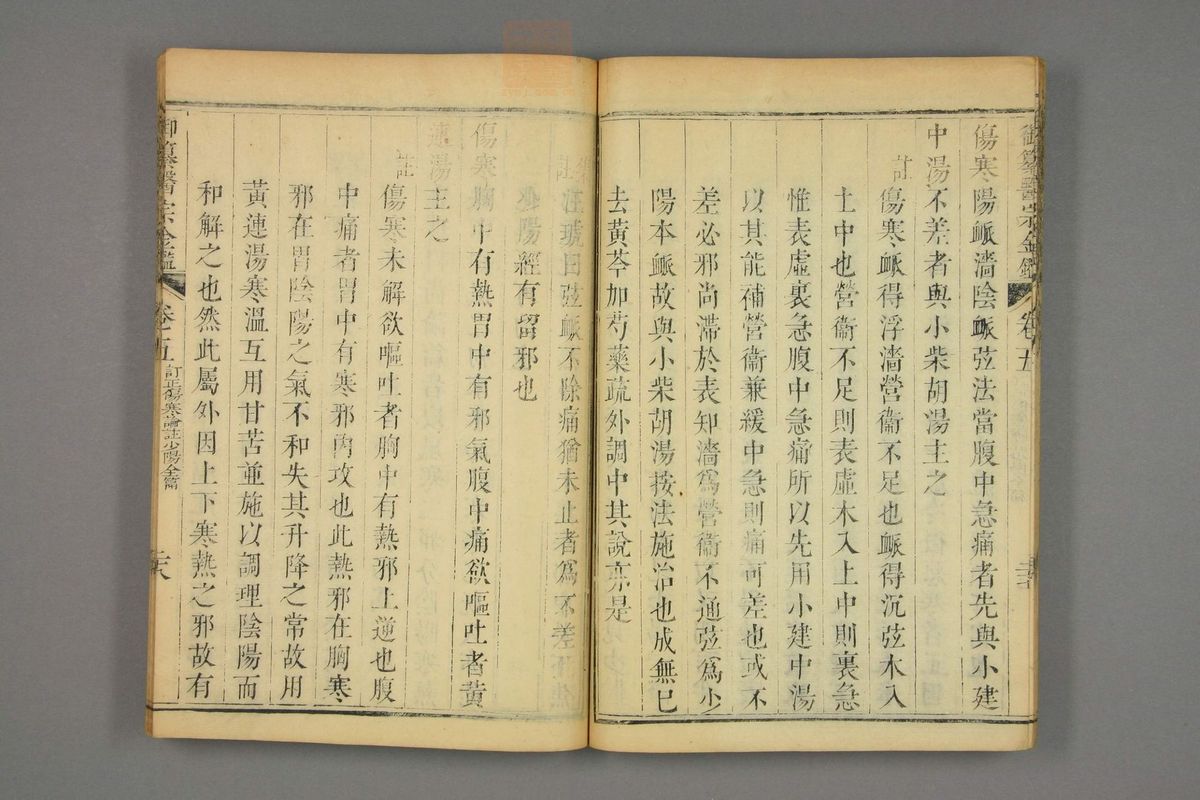 御纂醫宗金鑑
卷五
傷寒陽脈濇陰脈弦法當腹中急痛者先與小建
中湯不差者與小柴胡湯主之
註
傷寒脈得浮濇營衞不足也脈得沉弦木入
土中也營衞不足則表虛木入土中則裏急
惟表虛裏急腹中急痛所以先用小建中湯
以其能補營衞兼緩中急則痛可差也或不
差必邪尚滯於表知濇爲營衞不通弦爲少
陽本脈故與小柴胡湯按法施治也成無已
去黃芩加芍藥疏外調中其說亦是
註汪琥曰弦脈不除痛猶未止者爲不差
陽經有留邪也
傷寒胸中有熱胃中有邪氣腹中痛欲嘔吐者黃
連湯主之
註
傷寒未解欲嘔吐者胸中有熱邪上逆也腹
中痛者胃中有寒邪內攻也此熱邪在胸寒
邪在胃陰陽之氣不和失其升降之常故用
黃連湯寒溫互用甘苦並施以調理陰陽而
和解之也然此屬外因上下寒熱之邪故有
御纂醫宗金鑑
卷五
訂正傷寒論註少陽全篇
六